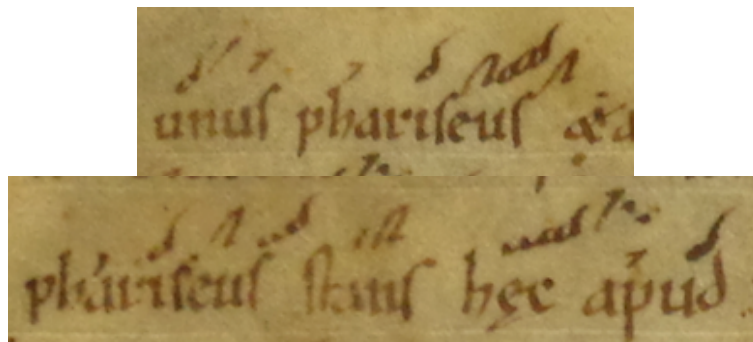 unus phariseus &a
phariseus stans hęc apud